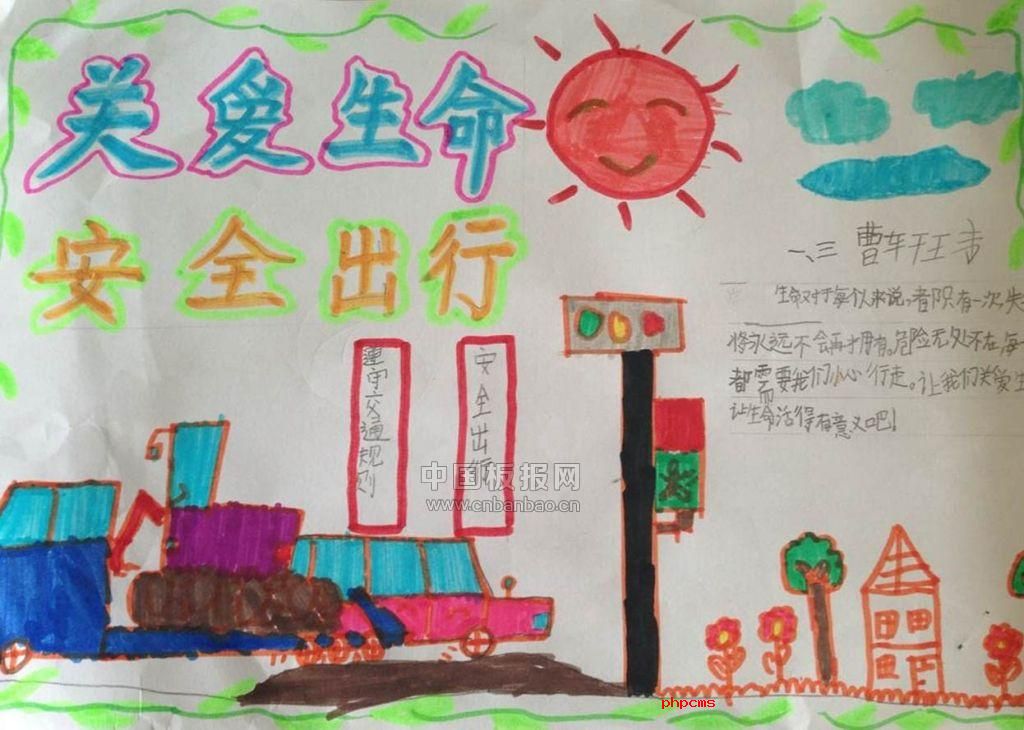 关爱生命
安全出行
一、三 曹
生命对于每
来说。者只有一次。失
将永远不会再拥有。危险无处不在。每一
都需要我们小心行走。让我们关爱生
而
让生命活得有意义吧！
遵守交通规则
安全出行
中国板报网
www.cnbanbao.cn
phpcms